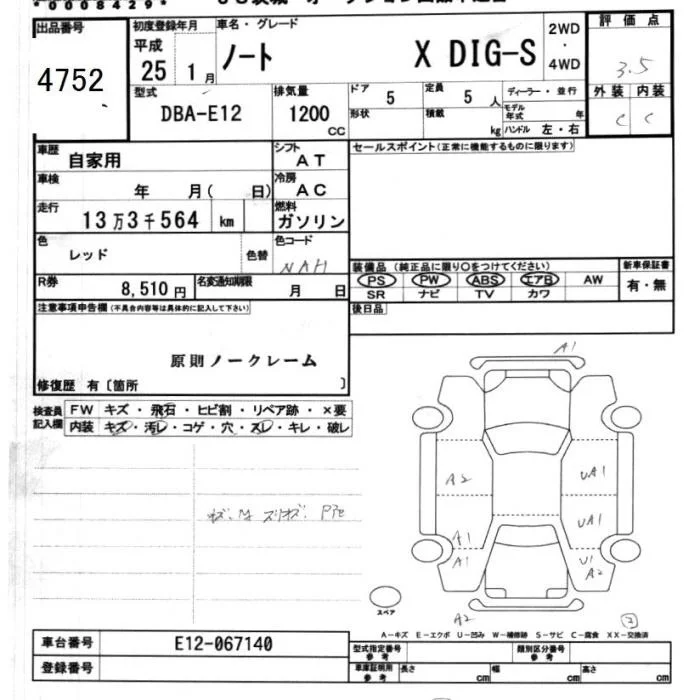 *0008429*
出品番号 初度登録年月 車名・グレード 2WD 評価点
4752 平成 25 1月 ノート X DIG-S ・ 4WD 3.5
型式 排気量 ドア 定員 ディーラー・並行 外装 内装
DBA-E12 1200 CC 5 5人 モデル年式 年 C C
形状 積載 kg ハンドル 左・右
車歴 自家用 シフト AT セールスポイント(正常に機能するものに限ります)
車検 年 月( 日) 冷房 AC
走行 13万3千564 km 燃料 ガソリン
色 レッド 色替 色コード NAH
装備品(純正品に限り○をつけてください) 新車保証書
R券 8,510円 名変通知期限 月 日 PS PW ABS エアB AW 有・無
SR ナビ TV カワ
注意事項申告欄(不具合内容等は具体的に記入して下さい) 後日品
原則ノークレーム
修復歴 有〔箇所 〕
検査員記入欄 FW キズ・飛石・ヒビ割・リペア跡・×要
内装 キズ・汚レ・コゲ・穴・スレ・キレ・破レ
A1
A2 UA1
UA1
A1 U1
A1 A2
スペア
A2
A-キズ E-エクボ U-凹み W-補修跡 S-サビ C-腐食 XX-交換済
車台番号 E12-067140 型式指定番号 参考 類別区分番号 参考
登録番号 車庫証明用 参考 長さ cm 幅 cm 高さ cm